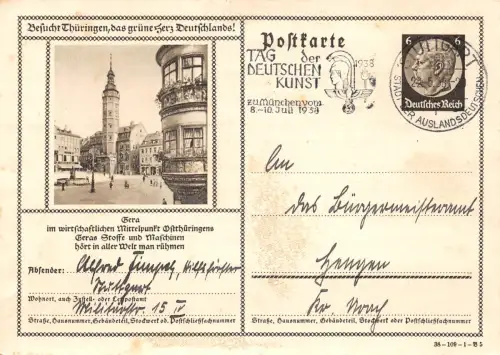 Besucht Thüringen, das grüne Herz Deutschlands!
Gera
im wirtschaftlichen Mittelpunkt Ostthüringens
Geras Stoffe und Maschinen
hört in aller Welt man rühmen
Absender: Alfred
Stuttgart
Wohnort, auch Zustell- oder Leitpostamt
Militärstr. 15 IV
Straße, Hausnummer, Gebäudeteil, Stockwerk od. Postschließfachnummer
Postkarte
TAG der
DEUTSCHEN
KUNST
1938
zu München vom
8.-10. Juli 1938
STUTTGART
STADT DER AUSLANDSDEUTSCHEN
6 6
Deutsches Reich
An
das Bürgermeisteramt
Hengen
Kr. Urach
Straße, Hausnummer, Gebäudeteil, Stockwerk oder Postschließfachnummer
38-109-1-B5